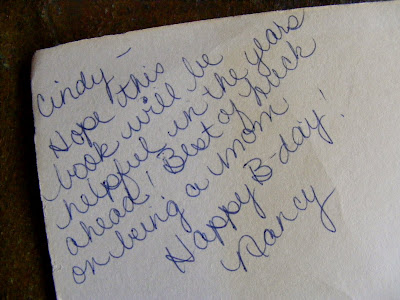 Cindy—
Hope this
book will be
helpful in the years
ahead! Best of luck
on being a mom
Happy B-day!
Nancy